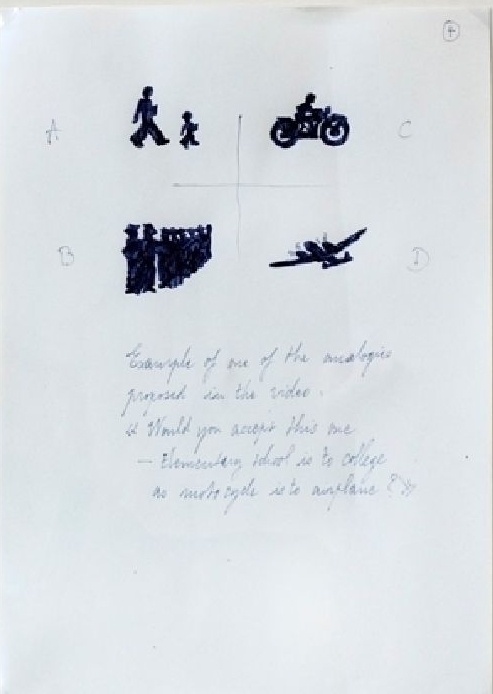 4
A
C
B
D
Example of one of the analogies
proposed in the video.
« Would you accept this one
— Elementary school is to college
as motorcycle is to airplane ? »